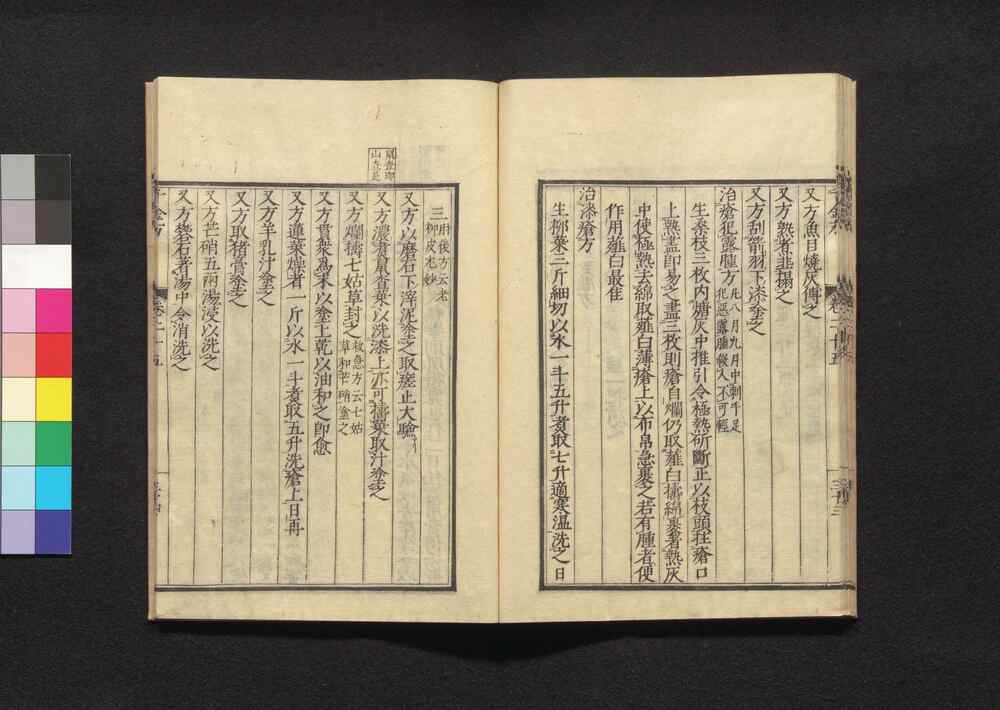 又方魚目燒灰傅之
又方熟煮韭搨之
又方刮箭羽下漆塗之
治瘡犯露腫方凡八月九月中刺手足
犯惡露腫殺人不可輕
生桑枝三枚內塘灰中推引令極熱斫斷正以枝頭拄瘡口
上熱盡即易之盡三枚則瘡自爛仍取薤白擣綿裹著熱灰
中使極熱去綿取薤白薄瘡上以布帛急裹之若有腫者便
作用薤白最佳
治漆瘡方
生柳葉三斤細切以水一斗五升煮取七升適寒溫洗之日
三肘後方云老
柳皮尤妙
又方以磨石下滓泥塗之取瘥止大驗
又方濃煮鼠查葉以洗漆上亦可擣葉取汁塗之
鼠查即
山查是
又方爛擣七姑草封之救急方云七姑
草和芒硝塗之
又方貫衆爲末以塗上乾以油和之即愈
又方蓮葉燥者一斤以水一斗煮取五升洗瘡上日再
又方羊乳汁塗之
又方取猪膏塗之
又方芒硝五兩湯浸以洗之
又方礬石著湯中令消洗之